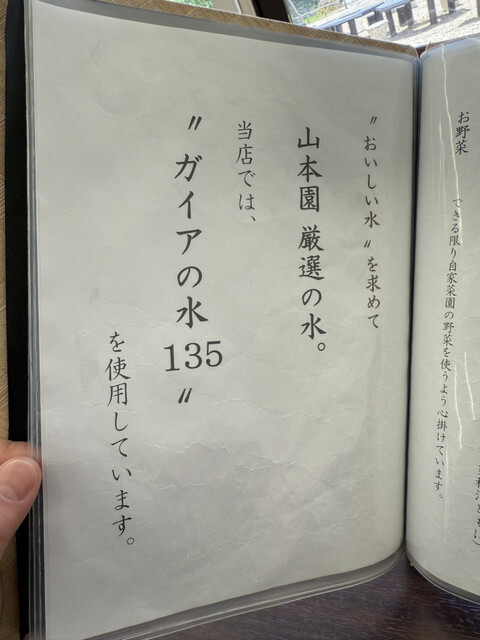 〃おいしい水〃を求めて
山本園 厳選の水。
当店では、
〃ガイアの水135〃
を使用しています。
お野菜
できる限り自家菜園の野菜を使うよう心掛けています。